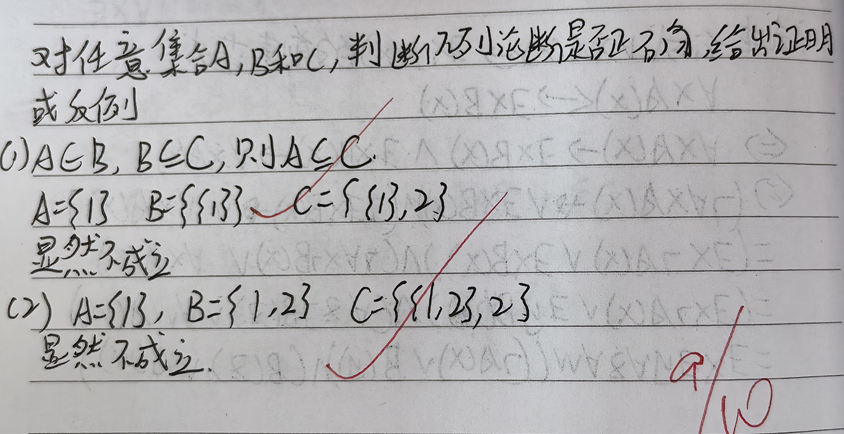 对任意集合A,B和C,判断下列论断是否正确,给出证明
或反例
(1)A∈B, B⊆C, 则A⊆C.
A={1} B={{1}} C={{1},2}
显然不成立
(2) A={1}, B={1,2} C={{1,2},2}
显然不成立.
9/10